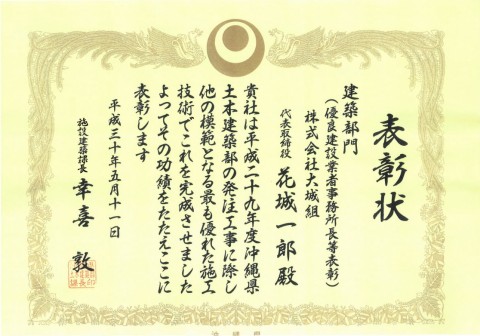 表彰状
建築部門
（優良建設業者事務所長等表彰）
株式会社大城組
代表取締役 花城一郎殿
貴社は平成二十九年度沖縄県
土木建築部の発注工事に際し
他の模範となる最も優れた施工
技術でこれを完成させました
よってその功績をたたえここに
表彰します
平成三十年五月十一日
施設建築課長 幸喜 敦
沖縄県